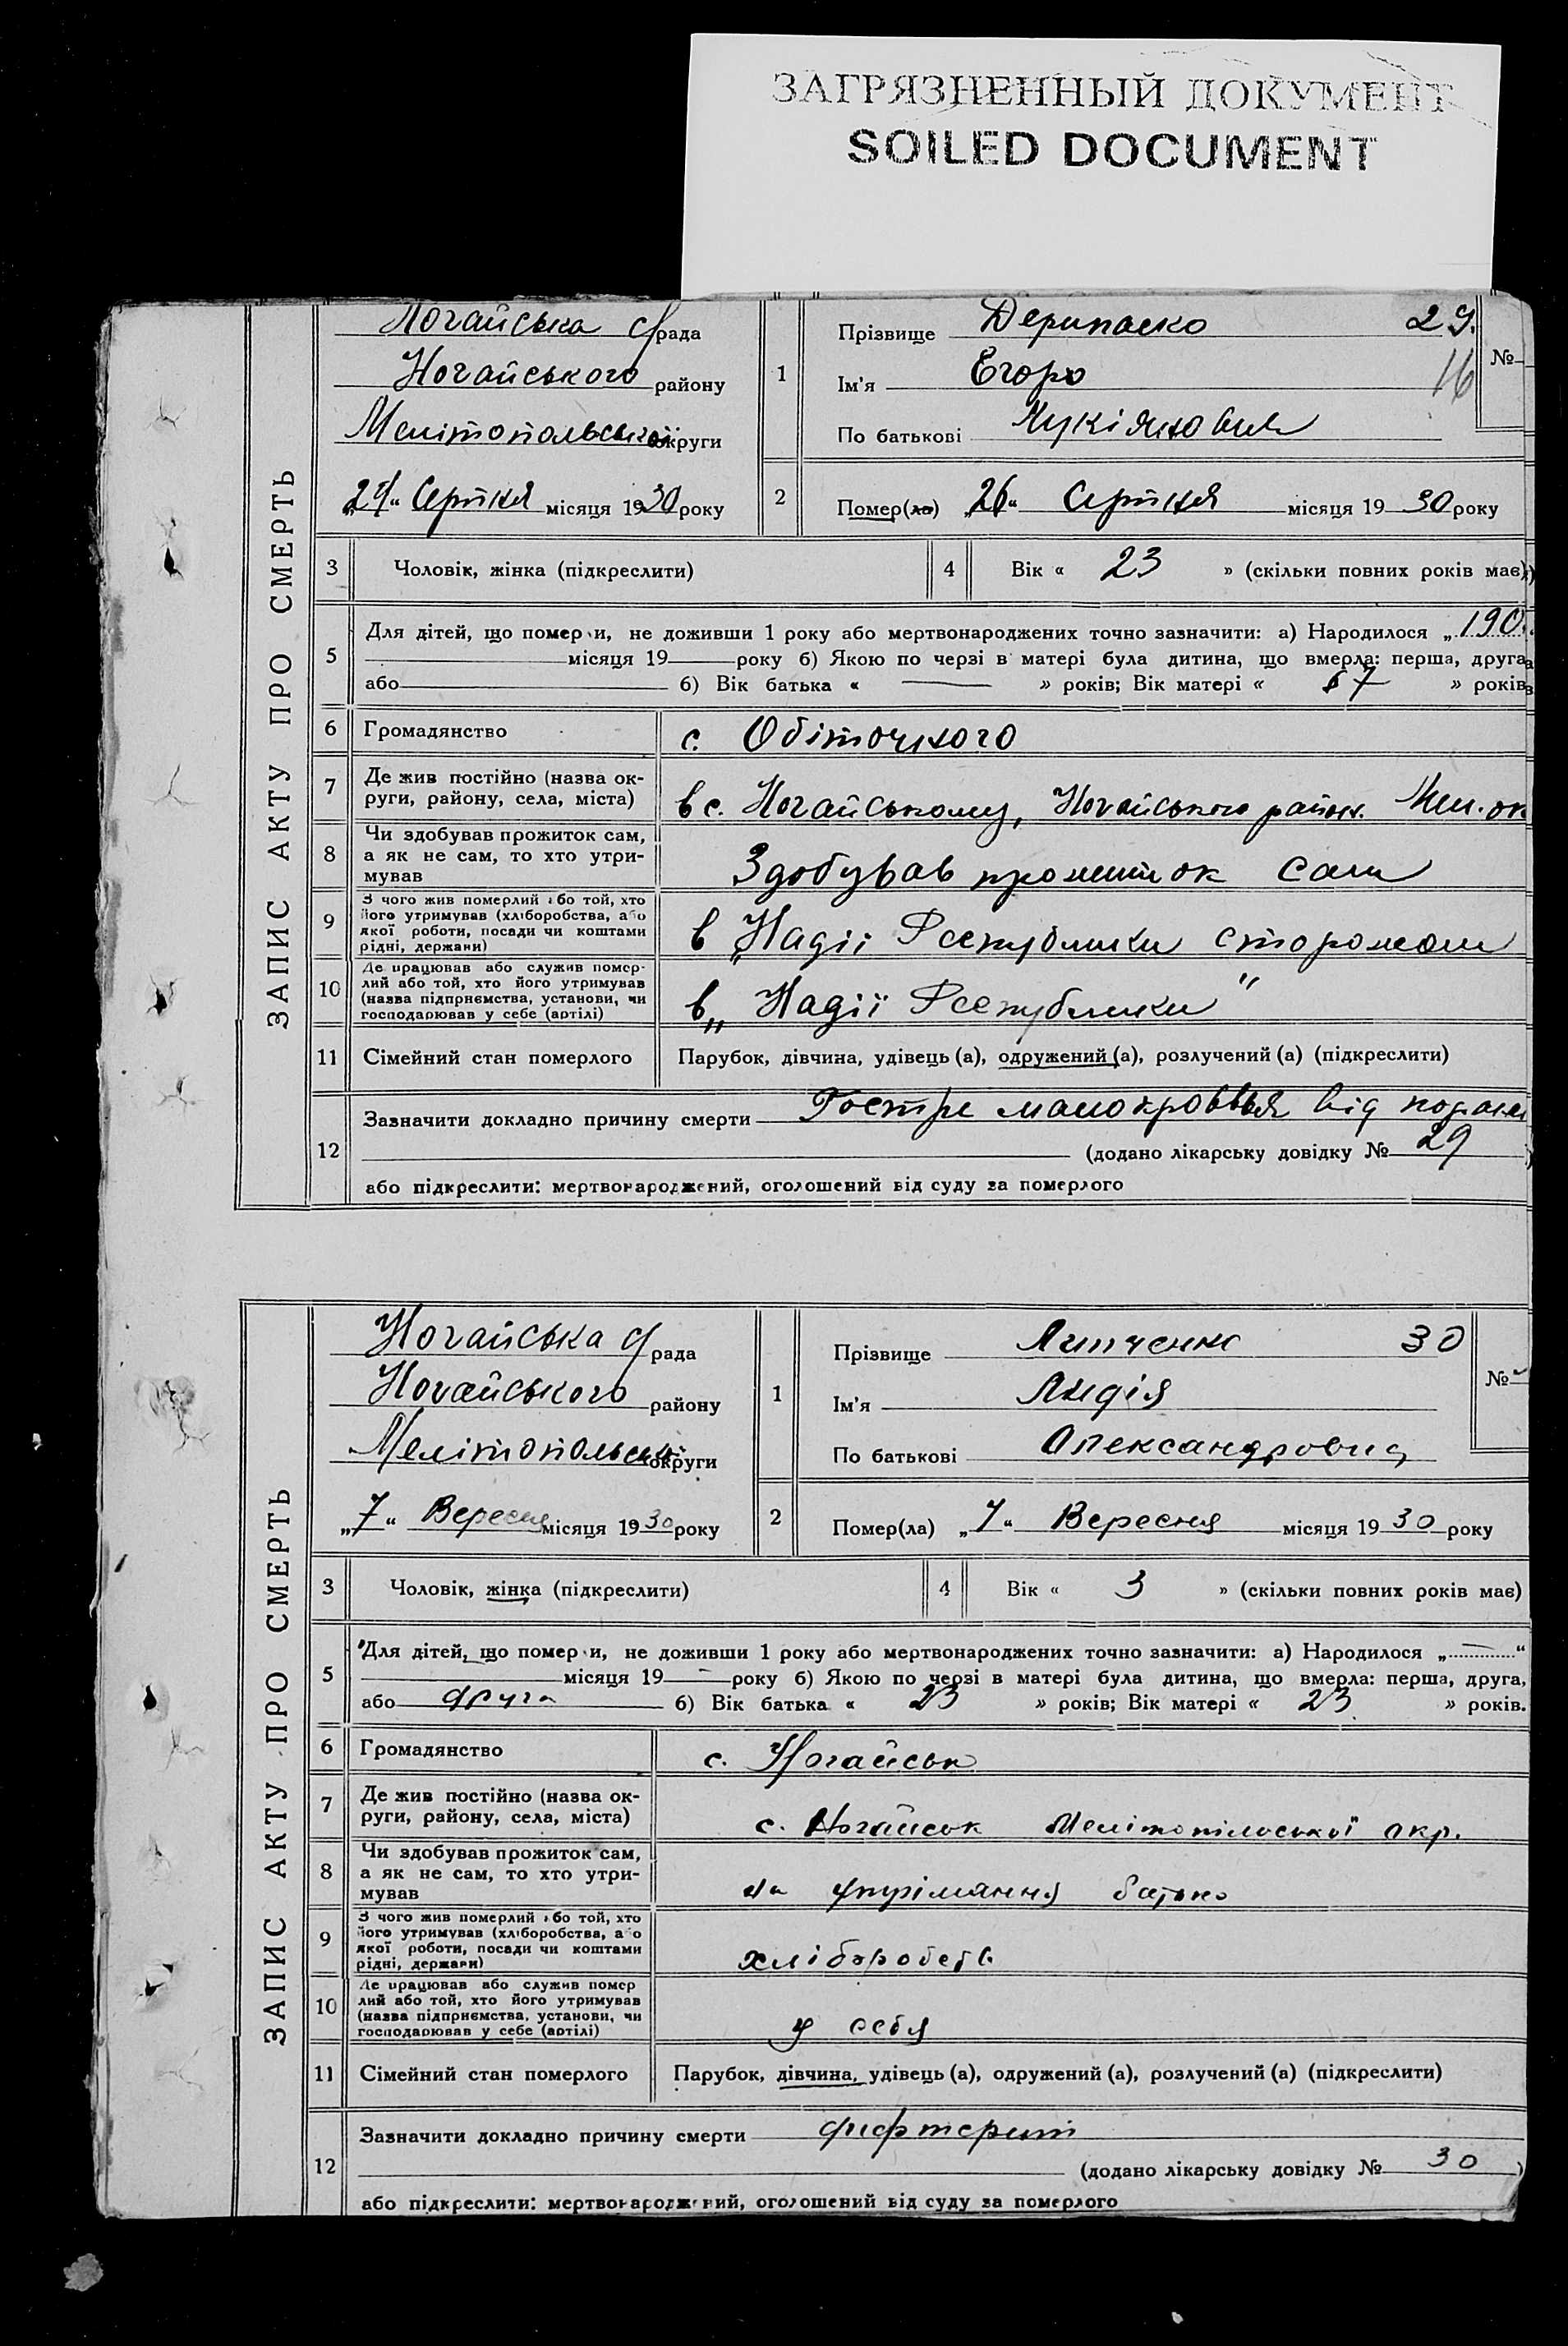 ЗАГРЯЗНЕННЫЙ ДОКУМЕНТ
SOILED DOCUMENT
ЗАПИС АКТУ ПРО СМЕРТЬ
Ногайська с/рада
Ногайського району
Мелітопольської округи
серпня місяця 1930 року
1
Прізвище Дерипаско 29.
Ім'я Егоро 16
По батькові
№
2
Помер(ла) „26“ серпня місяця 1930 року
3 Чоловік, жінка (підкреслити)
4 Вік « 23 » (скільки повних років має)
5 Для дітей, що померли, не доживши 1 року або мертвонароджених точно зазначити: а) Народилося „190
місяця 19 року б) Якою по черзі в матері була дитина, що вмерла: перша, друга
або б) Вік батька « — » років; Вік матері « » років
6 Громадянство с. Обіточного
7 Де жив постійно (назва округи, району, села, міста) в с. Ногайському, Ногайського район. Мел. ок
8 Чи здобував прожиток сам, а як не сам, то хто утримував Здобував прожиток сам
9 З чого жив померлий або той, хто його утримував (хліборобства, або якої роботи, посади чи коштами рідні, держави) в „Надії Республики сторожом
10 Де працював або служив померлий або той, хто його утримував (назва підприємства, установи, чи господарював у себе (артілі) в „Надії Республики"
11 Сімейний стан померлого Парубок, дівчина, удівець (а), одружений (а), розлучений (а) (підкреслити)
12 Зазначити докладно причину смерти Гостре малокровъя від
(додано лікарську довідку № 29)
або підкреслити: мертвонароджений, оголошений від суду за померлого
ЗАПИС АКТУ ПРО СМЕРТЬ
Ногайська с/рада
Ногайського району
Мелітопольської округи
„7“ Вересня місяця 1930 року
1
Прізвище Липченко 30
Ім'я Лидія
По батькові Олександровна
№
2
Помер(ла) „7“ Вересня місяця 1930 року
3 Чоловік, жінка (підкреслити)
4 Вік « 3 » (скільки повних років має)
5 Для дітей, що померли, не доживши 1 року або мертвонароджених точно зазначити: а) Народилося „—“
місяця 19 — року б) Якою по черзі в матері була дитина, що вмерла: перша, друга,
або друга б) Вік батька « 23 » років; Вік матері « 23 » років.
6 Громадянство с. Ногайськ
7 Де жив постійно (назва округи, району, села, міста) с. Ногайськ Мелітопільської окр.
8 Чи здобував прожиток сам, а як не сам, то хто утримував на утрімання батько
9 З чого жив померлий або той, хто його утримував (хліборобства, або якої роботи, посади чи коштами рідні, держави) хліборобств
10 Де працював або служив померлий або той, хто його утримував (назва підприємства, установи, чи господарював у себе (артілі) у себя
11 Сімейний стан померлого Парубок, дівчина, удівець (а), одружений (а), розлучений (а) (підкреслити)
12 Зазначити докладно причину смерти дифтерит
(додано лікарську довідку № 30)
або підкреслити: мертвонароджений, оголошений від суду за померлого